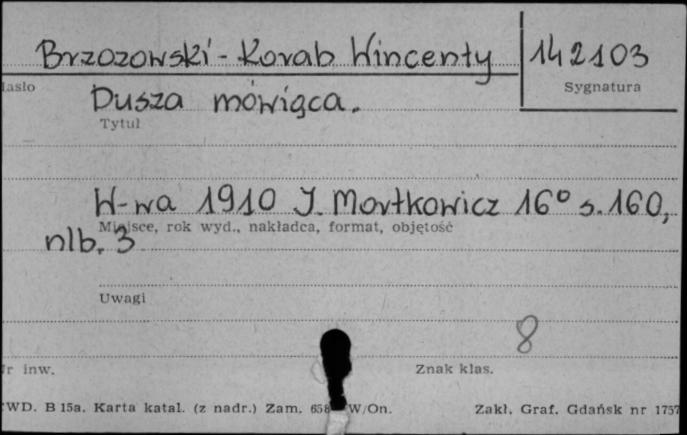 Brzozowski-Korab Wincenty 142103
Hasło Sygnatura
Dusza mówiąca.
Tytuł
W-wa 1910 J. Mortkowicz 16° s. 160,
Miejsce, rok wyd., nakładca, format, objętość
nlb. 3
Uwagi
8
Nr inw. Znak klas.
CWD. B 15a. Karta katal. (z nadr.) Zam. 658 W/On. Zakł. Graf. Gdańsk nr 1757